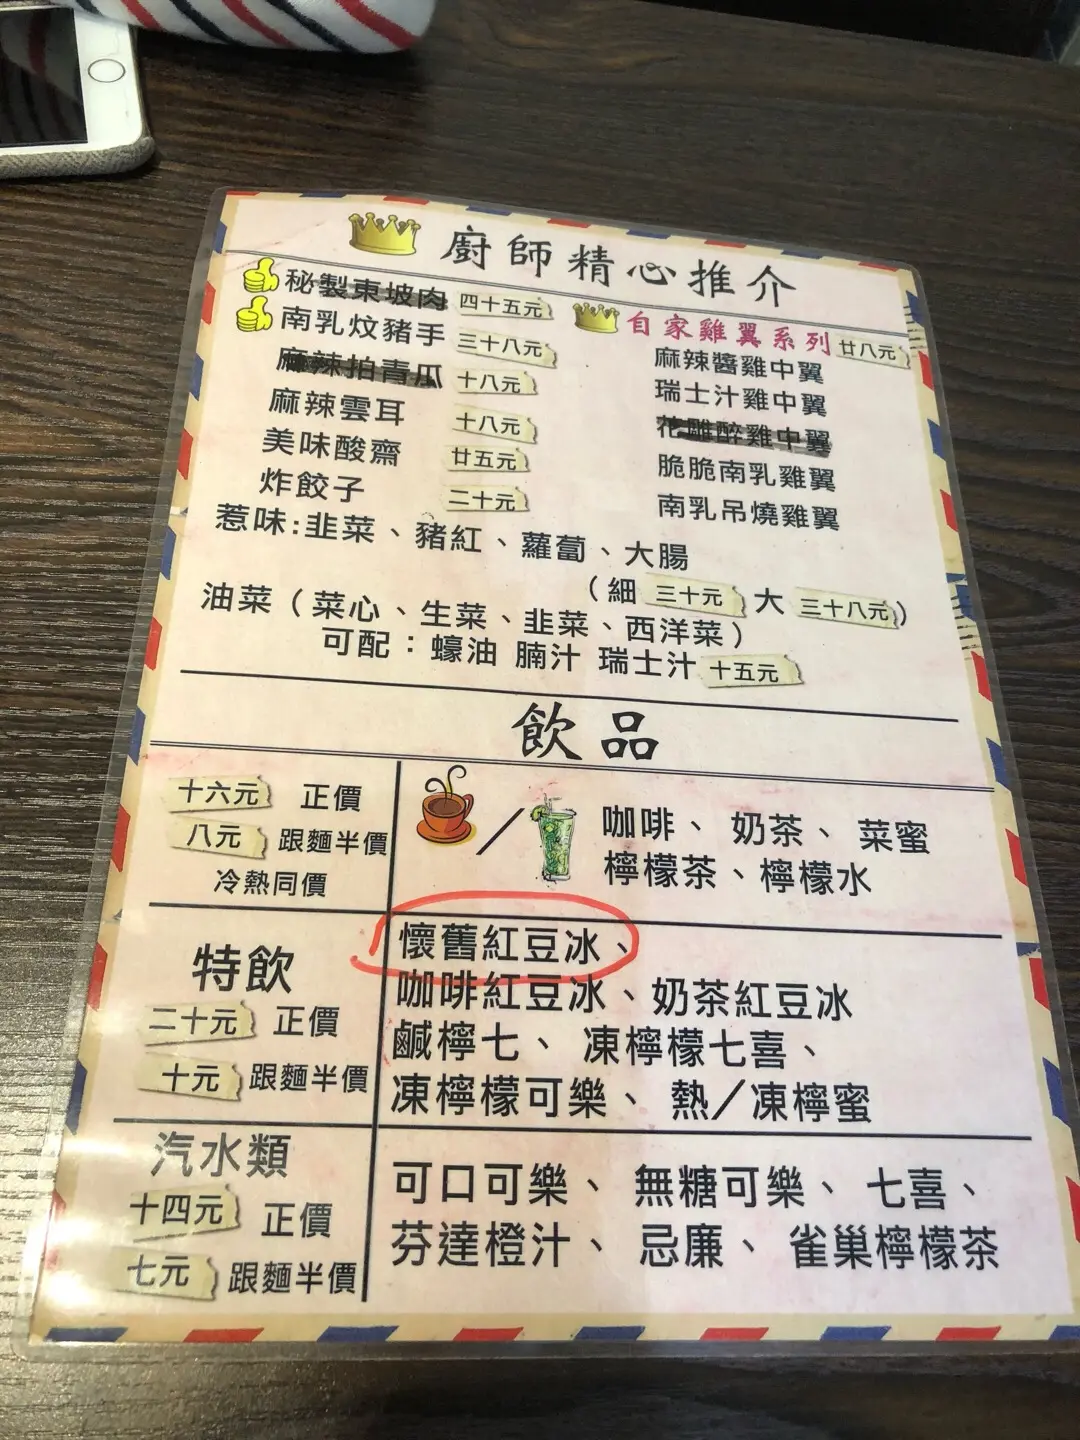 廚師精心推介
秘製東坡肉 四十五元
南乳炆豬手 三十八元
麻辣拍青瓜 十八元
麻辣雲耳 十八元
美味酸齋 廿五元
炸餃子 二十元
自家雞翼系列 廿八元
麻辣醬雞中翼
瑞士汁雞中翼
花雕醉雞中翼
脆脆南乳雞翼
南乳吊燒雞翼
惹味:韭菜、豬紅、蘿蔔、大腸
(細 三十元 大 三十八元)
油菜(菜心、生菜、韭菜、西洋菜)
可配:蠔油 腩汁 瑞士汁 十五元
飲品
十六元 正價
八元 跟麵半價
冷熱同價
/
咖啡、奶茶、菜蜜
檸檬茶、檸檬水
特飲
二十元 正價
十元 跟麵半價
懷舊紅豆冰、
咖啡紅豆冰、奶茶紅豆冰
鹹檸七、凍檸檬七喜、
凍檸檬可樂、熱/凍檸蜜
汽水類
十四元 正價
七元 跟麵半價
可口可樂、無糖可樂、七喜、
芬達橙汁、忌廉、雀巢檸檬茶